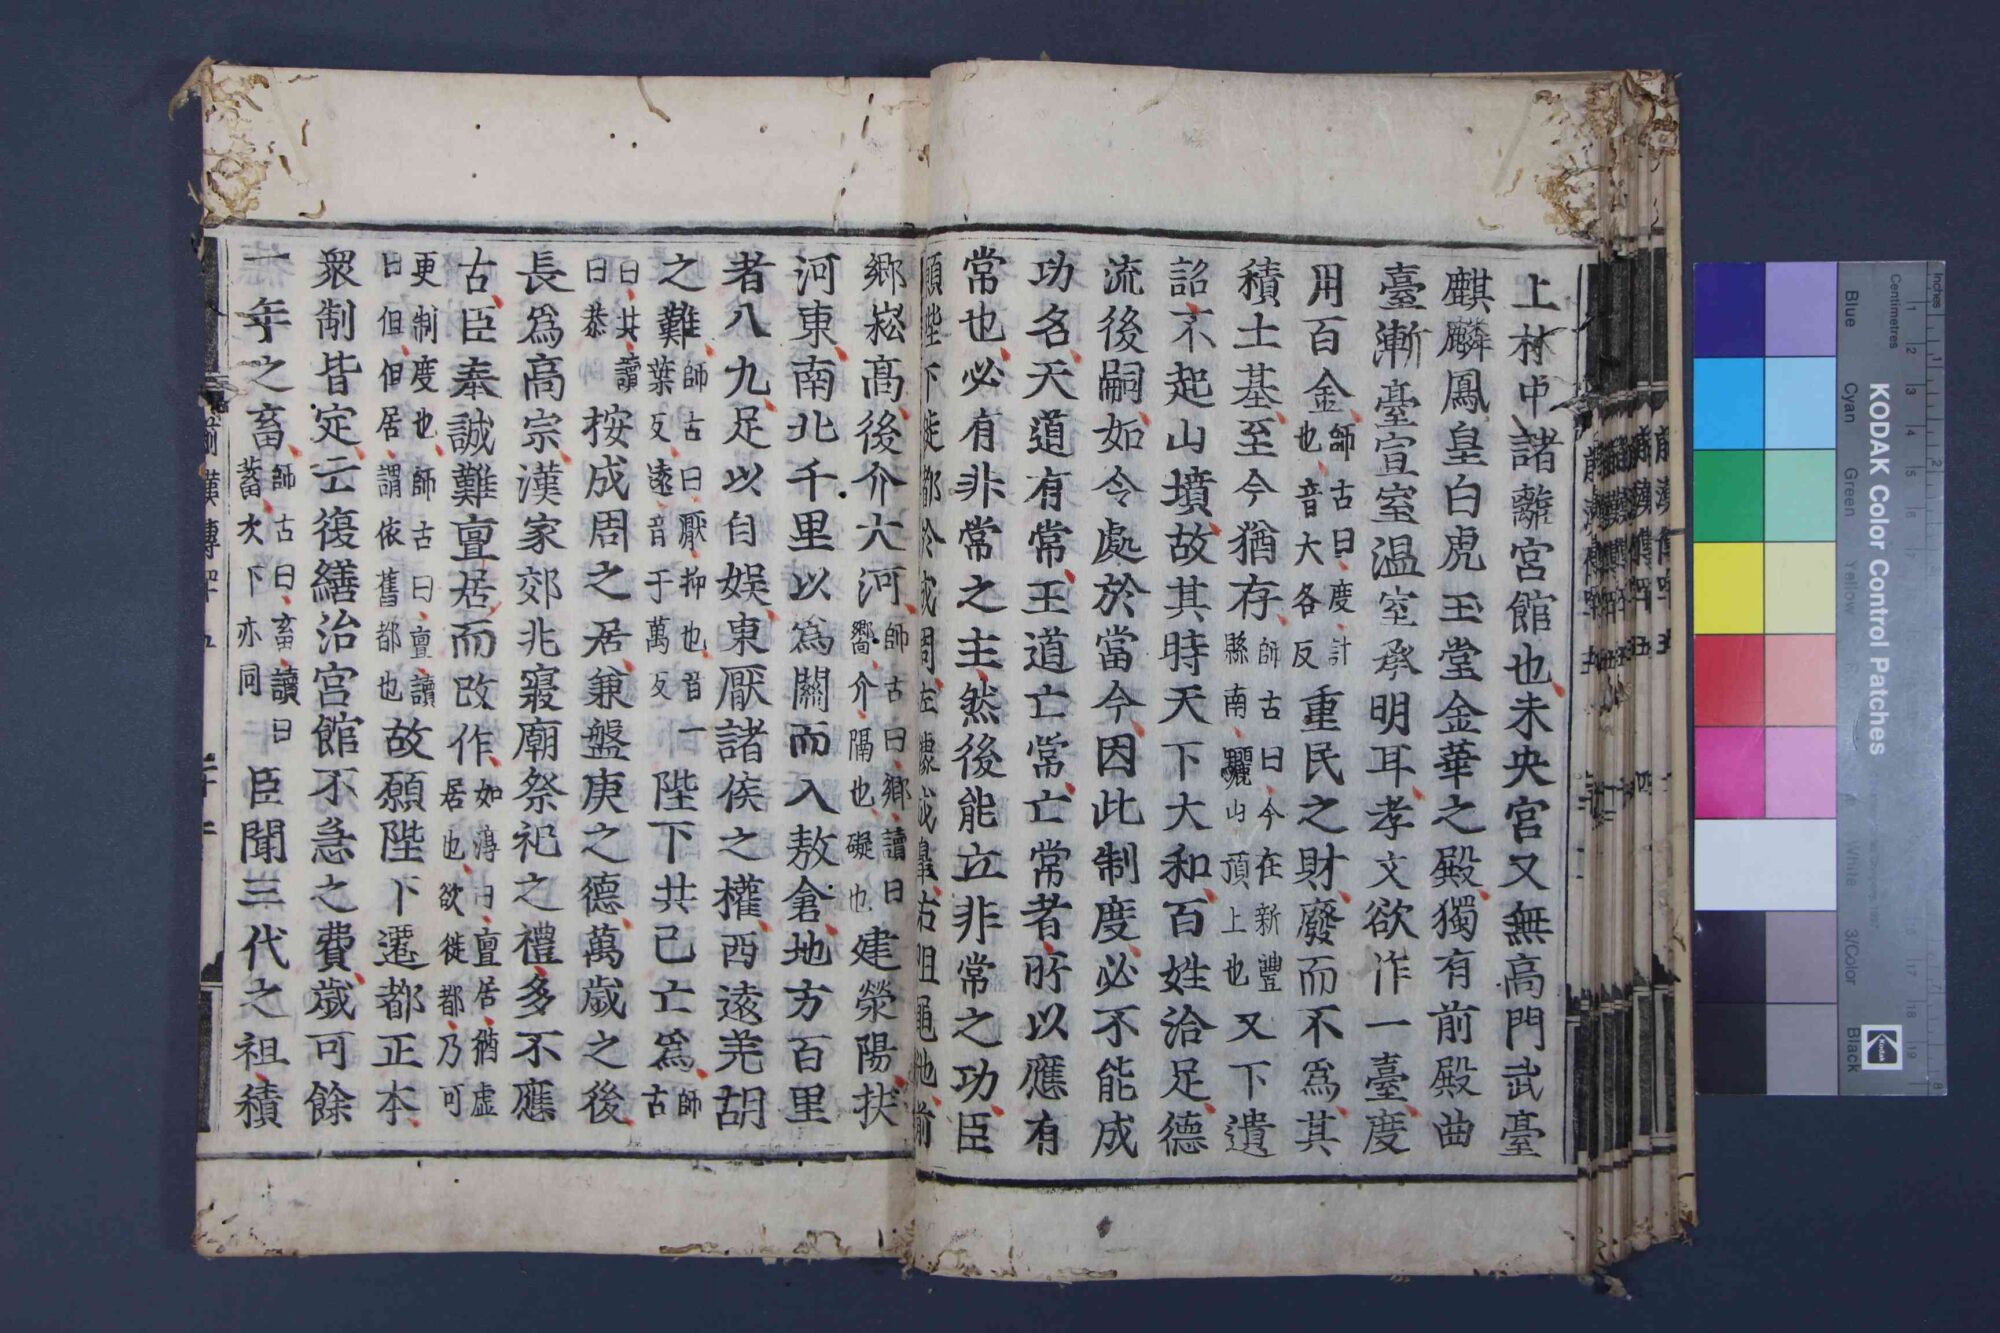 上林中諸離宮館也未央宮又無高門武臺
麒麟鳳皇白虎玉堂金華之殿獨有前殿曲
臺漸臺宣室温室承明耳孝文欲作一臺度
用百金師古曰度計也音大各反重民之財廢而不爲其
積土基至今猶存師古曰今在新豐縣南驪山頂上也又下遺
詔不起山墳故其時天下大和百姓洽足德
流後嗣如令處於當今因此制度必不能成
功名天道有常王道亡常亡常者所以應有
常也必有非常之主然後能立非常之功臣
願陛下徙都於成周左據成皐右阻黽池前
鄉崧高後介大河師古曰鄉讀曰嚮介隔也礙也建滎陽扶
河東南北千里以爲關而入敖倉地方百里
者八九足以自娛東厭諸侯之權西遠羌胡
之難師古曰厭抑也音一葉反遠音于萬反陛下共己亡爲師古
曰共讀曰恭按成周之居兼盤庚之德萬歲之後
長爲高宗漢家郊兆寢廟祭祀之禮多不應
古臣奉誠難亶居而改作如淳曰亶居猶虛居也欲徙都乃可
更制度也師古曰亶讀曰但但居謂依舊都也故願陛下遷都正本
衆制皆定亡復繕治宮館不急之費歲可餘
一年之畜師古曰畜讀曰蓄次下亦同臣聞三代之祖積
KODAK Color Control Patches
Blue
Cyan
Green
Yellow
Red
Magenta
White
3/Color
Black
Inches
Centimetres
Kodak